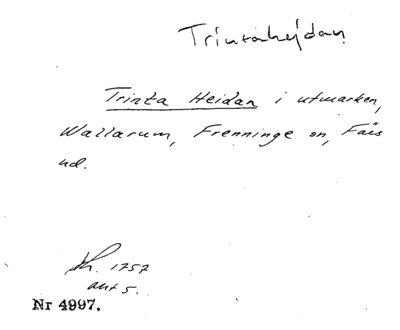 Trintahejdan
Trinta Heidan i utmarken,
Wallarum, Frenninge sn, Färs
hd.
1757
akt 5.
Nr 4997.